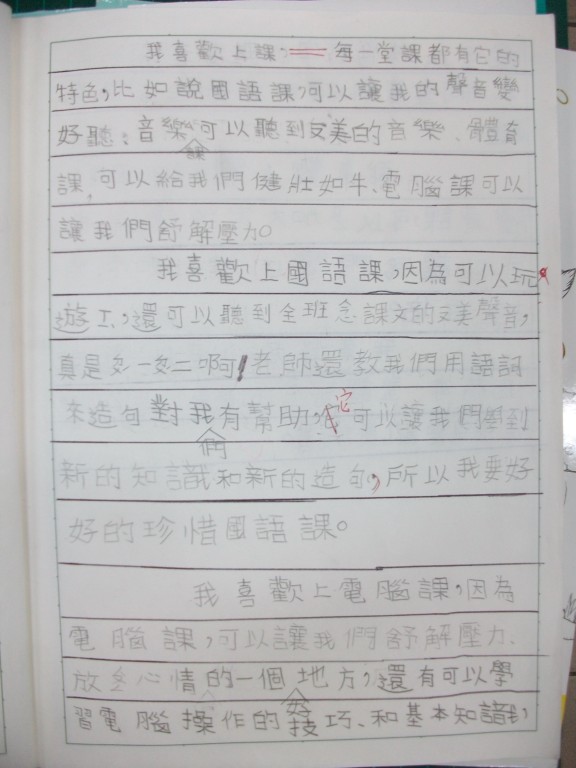 我喜歡上課，每一堂課都有它的
特色，比如說國語課，可以讓我的聲音變
好聽、音樂課可以聽到美的音樂、體育
課，可以給我們健壯如牛、電腦課可以
讓我們舒解壓力。
我喜歡上國語課，因為可以玩
遊，還可以聽到全班念課文的美聲音，
真是啊！老師還教我們用語詞
來造句對我們有幫助，它可以讓我們學到
新的知識和新的造句，所以我要好
好的珍惜國語課。
我喜歡上電腦課，因為
電腦課，可以讓我們舒解壓力、
放心情的一個好地方，還有可以學
習電腦操作的技巧、和基本知識，